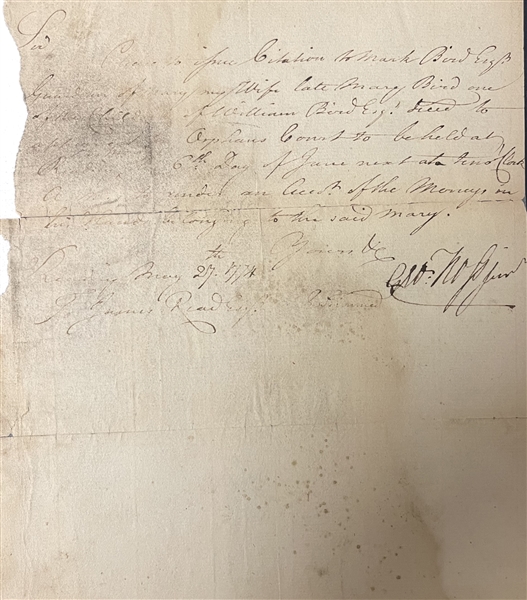 Sir
Please to issue Citation to Mark Bird Esqr.
Guardian of Mary my Wife late Mary Bird one
of the of William Bird Esqr. deced to
appear Orphans Court to be held at
6th Day of June next at ten o Clock
render an Acct. of the Moneys in
his Hands belonging to the said Mary.
Yours &c
Reading May 27th. 1774 Geo: Ross Junr
To James Read Esqr.